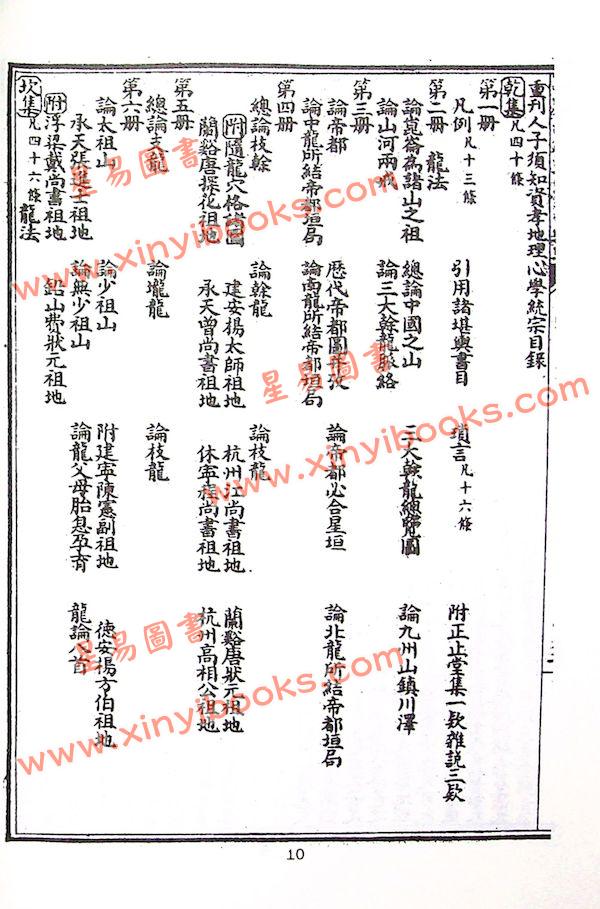 重刊人子須知資孝地理心學統宗目錄
乾集 凡四十條
第一冊
凡例 凡十三條 引用諸堪輿書目 瑣言 凡十六條 附正止堂集一欵雜説三欵
第二冊 龍法
論崑崙為諸山之祖 總論中國之山 三大榦龍總覽圖 論九州山鎮川澤
論山河兩戒 論三大榦龍脉絡
第三冊
論帝都 歷代帝都圖并攷 論帝都必合星垣 論北龍所結帝都垣局
論中龍所結帝都垣局 論南龍所結帝都垣局
第四冊
總論枝榦 論榦龍 論枝龍
附 隨龍穴格諸圖 建安楊太師祖地 杭州江尚書祖地 蘭谿唐狀元祖地
蘭谿唐探花祖地 承天曾尚書祖地 休寧程尚書祖地 杭州高相公祖地
第五冊
總論支龍 論壠龍 論枝龍
第六冊
論太祖山 論少祖山 附建寧陳憲副祖地 德安楊方伯祖地
承天張進士祖地 論無少祖山 論龍父母胎息孕育 龍論八首
附 浮梁戴尚書祖地 鉛山費狀元祖地
坎集 凡四十六條 龍法
10
星易圖書
www.xinyibooks.com
星易圖書
www.xinyibooks.com
星易圖書
www.xinyibooks.com